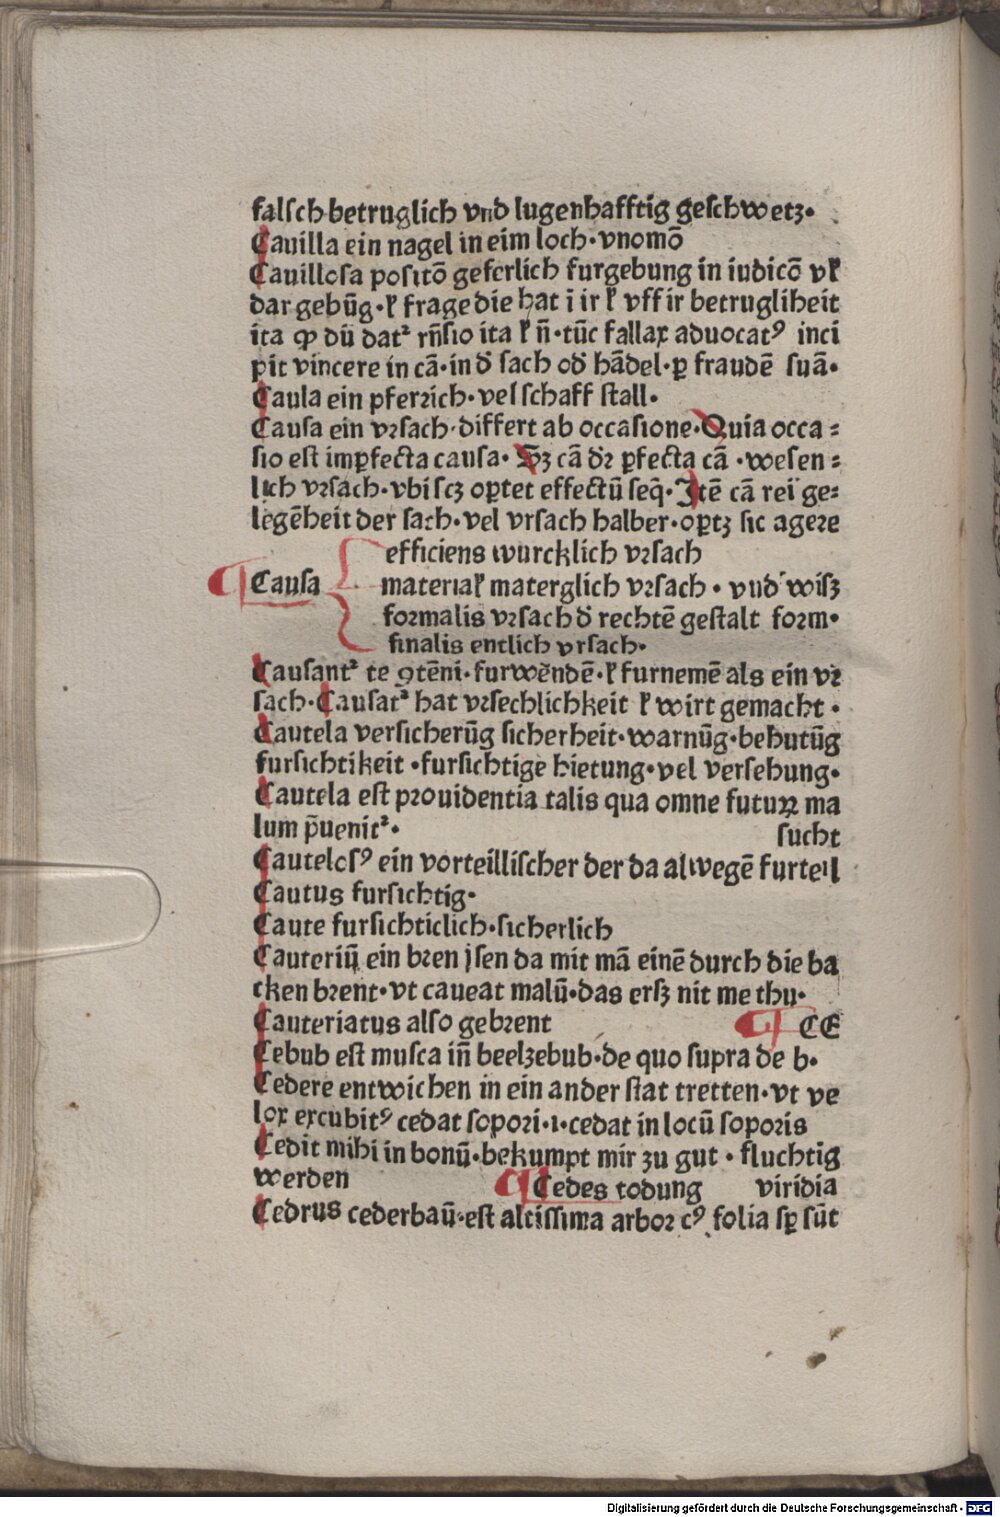 falsch betruglich vnd lugenhafftig geschwetz·
Cauilla ein nagel in eim loch·vnomō
Cauillosa positō geferlich furgebung in iudicō vꝉ
dar gebūg·ꝉ frage die hat ī ir ꝉ vff ir betrugliheit
ita ꝙ dū datᷣ rn̄sio ita ꝉ n̄·tūc fallax aduocatꝰ inci
pit vincere in cā·in d̄ sach od̄ hādel·ꝑ fraudē suā·
Caula ein pferrich·vel schaff stall·
Causa ein vrsach·differt ab occasione·Quia occa⸗
sio est imꝑfecta causa· Sꝫ cā dr̄ ꝑfecta cā ·wesen⸗
lich vrsach·vbi scꝫ oꝑtet effectū seq̄·Itē cā rei ge⸗
legēheit der sach·vel vrsach halber·oꝑtꝫ sic agere
efficiens wurcklich vrsach
Causa materiaꝉ materglich vrsach · vnd wisz
formalis vrsach d̄ rechtē gestalt form·
finalis entlich vrsach·
Causantᷣ te ꝯtēni·furwēndē·ꝉ furnemē als ein vr
sach·Causatᷣ hat vrsechlichkeit ꝉ wirt gemacht ·
Cautela versicherūg sicherheit·warnūg·behutūg
fursichtikeit ·fursichtige hietung·vel versehung·
Cautela est prouidentia talis qua omne futuꝝ ma
lum p̄uenitᷣ· sucht
Cautelosꝰ ein vorteillischer der da alwegē furteil
Cautus fursichtig·
Caute fursichticlich·sicherlich
Cauteriū ein bren jsen da mit mā einē durch die ba
cken brent·vt caueat malū·das ersz nit me thu·
Cauteriatus also gebrent ¶ CE
Cebub est musca in̄ beelzebub·de quo supra de b·
Cedere entwichen in ein ander stat tretten·vt ve
lox excubitꝰ cedat sopori·i·cedat in locū soporis
Cedit mihi in bonū·bekumpt mir zu gut · fluchtig
werden ¶ Cedes todung viridia
Cedrus cederbaū·est altissima arbor cꝰ folia sꝑ sūt
Digitalisierung gefördert durch die Deutsche Forschungsgemeinschaft · DFG